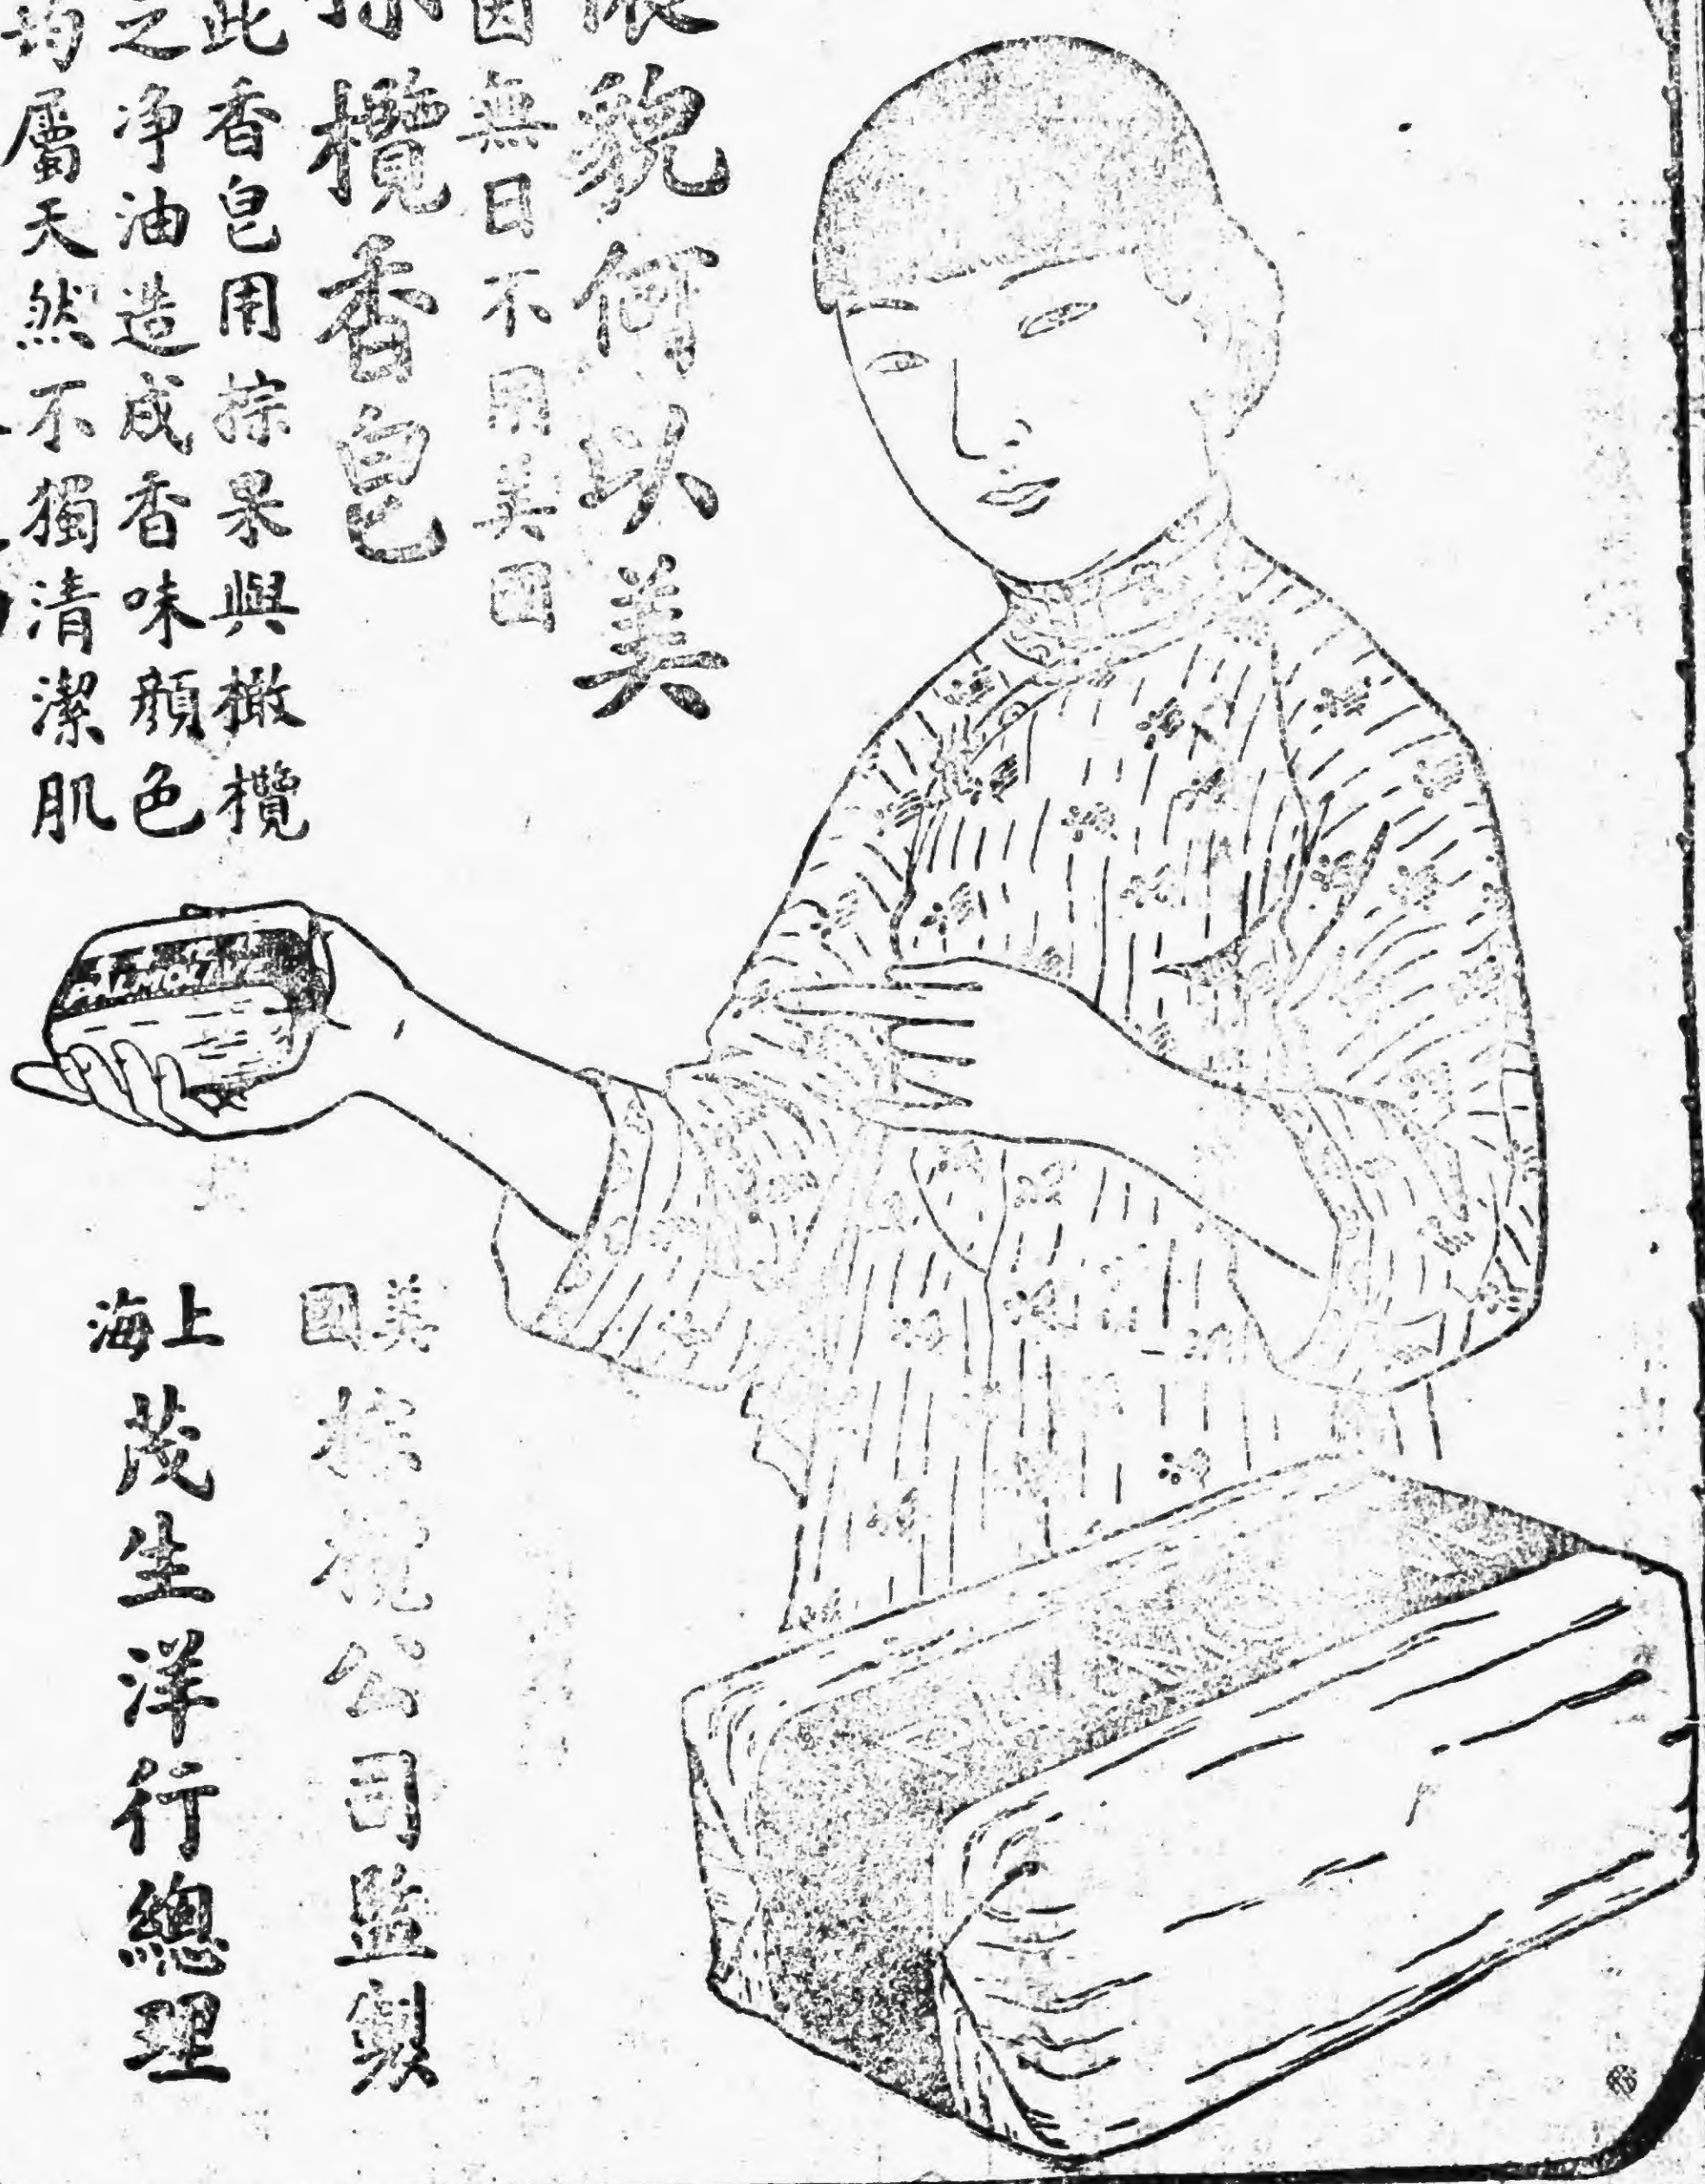 貌何以美
因無日不用美國
欖香皂
此香皂用棕果與橄欖
之净油造成香味顏色
均屬天然不獨清潔肌
PALMOLIVE
美國
棕欖公司監製
上海
茂生洋行總理